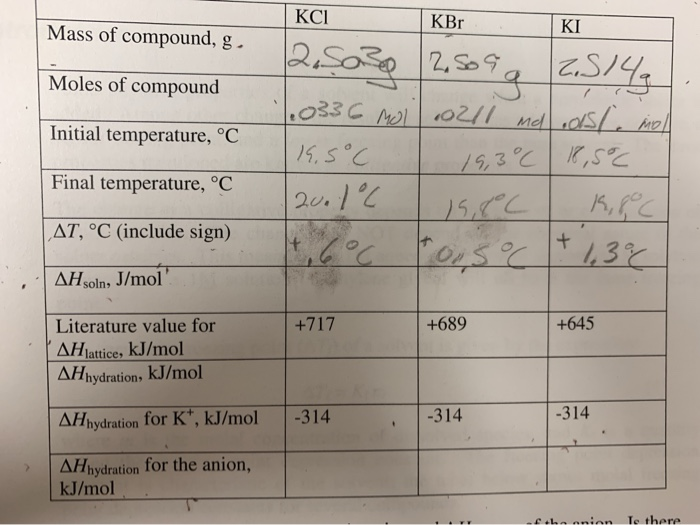 KCl KBr KI
Mass of compound, g. 2.503g 2.509g 2.514g
Moles of compound .0336 mol .0211 mol .0151. mol
Initial temperature, °C 19.5°C 19,3°C 18,5°C
Final temperature, °C 20.1°C 19,8°C 19,8°C
ΔT, °C (include sign) +.6°C +0.5°C +1.3°C
ΔHsoln, J/mol
Literature value for +717 +689 +645
ΔHlattice, kJ/mol
ΔHhydration, kJ/mol
ΔHhydration for K⁺, kJ/mol -314 -314 -314
ΔHhydration for the anion,
kJ/mol
of the anion Is there